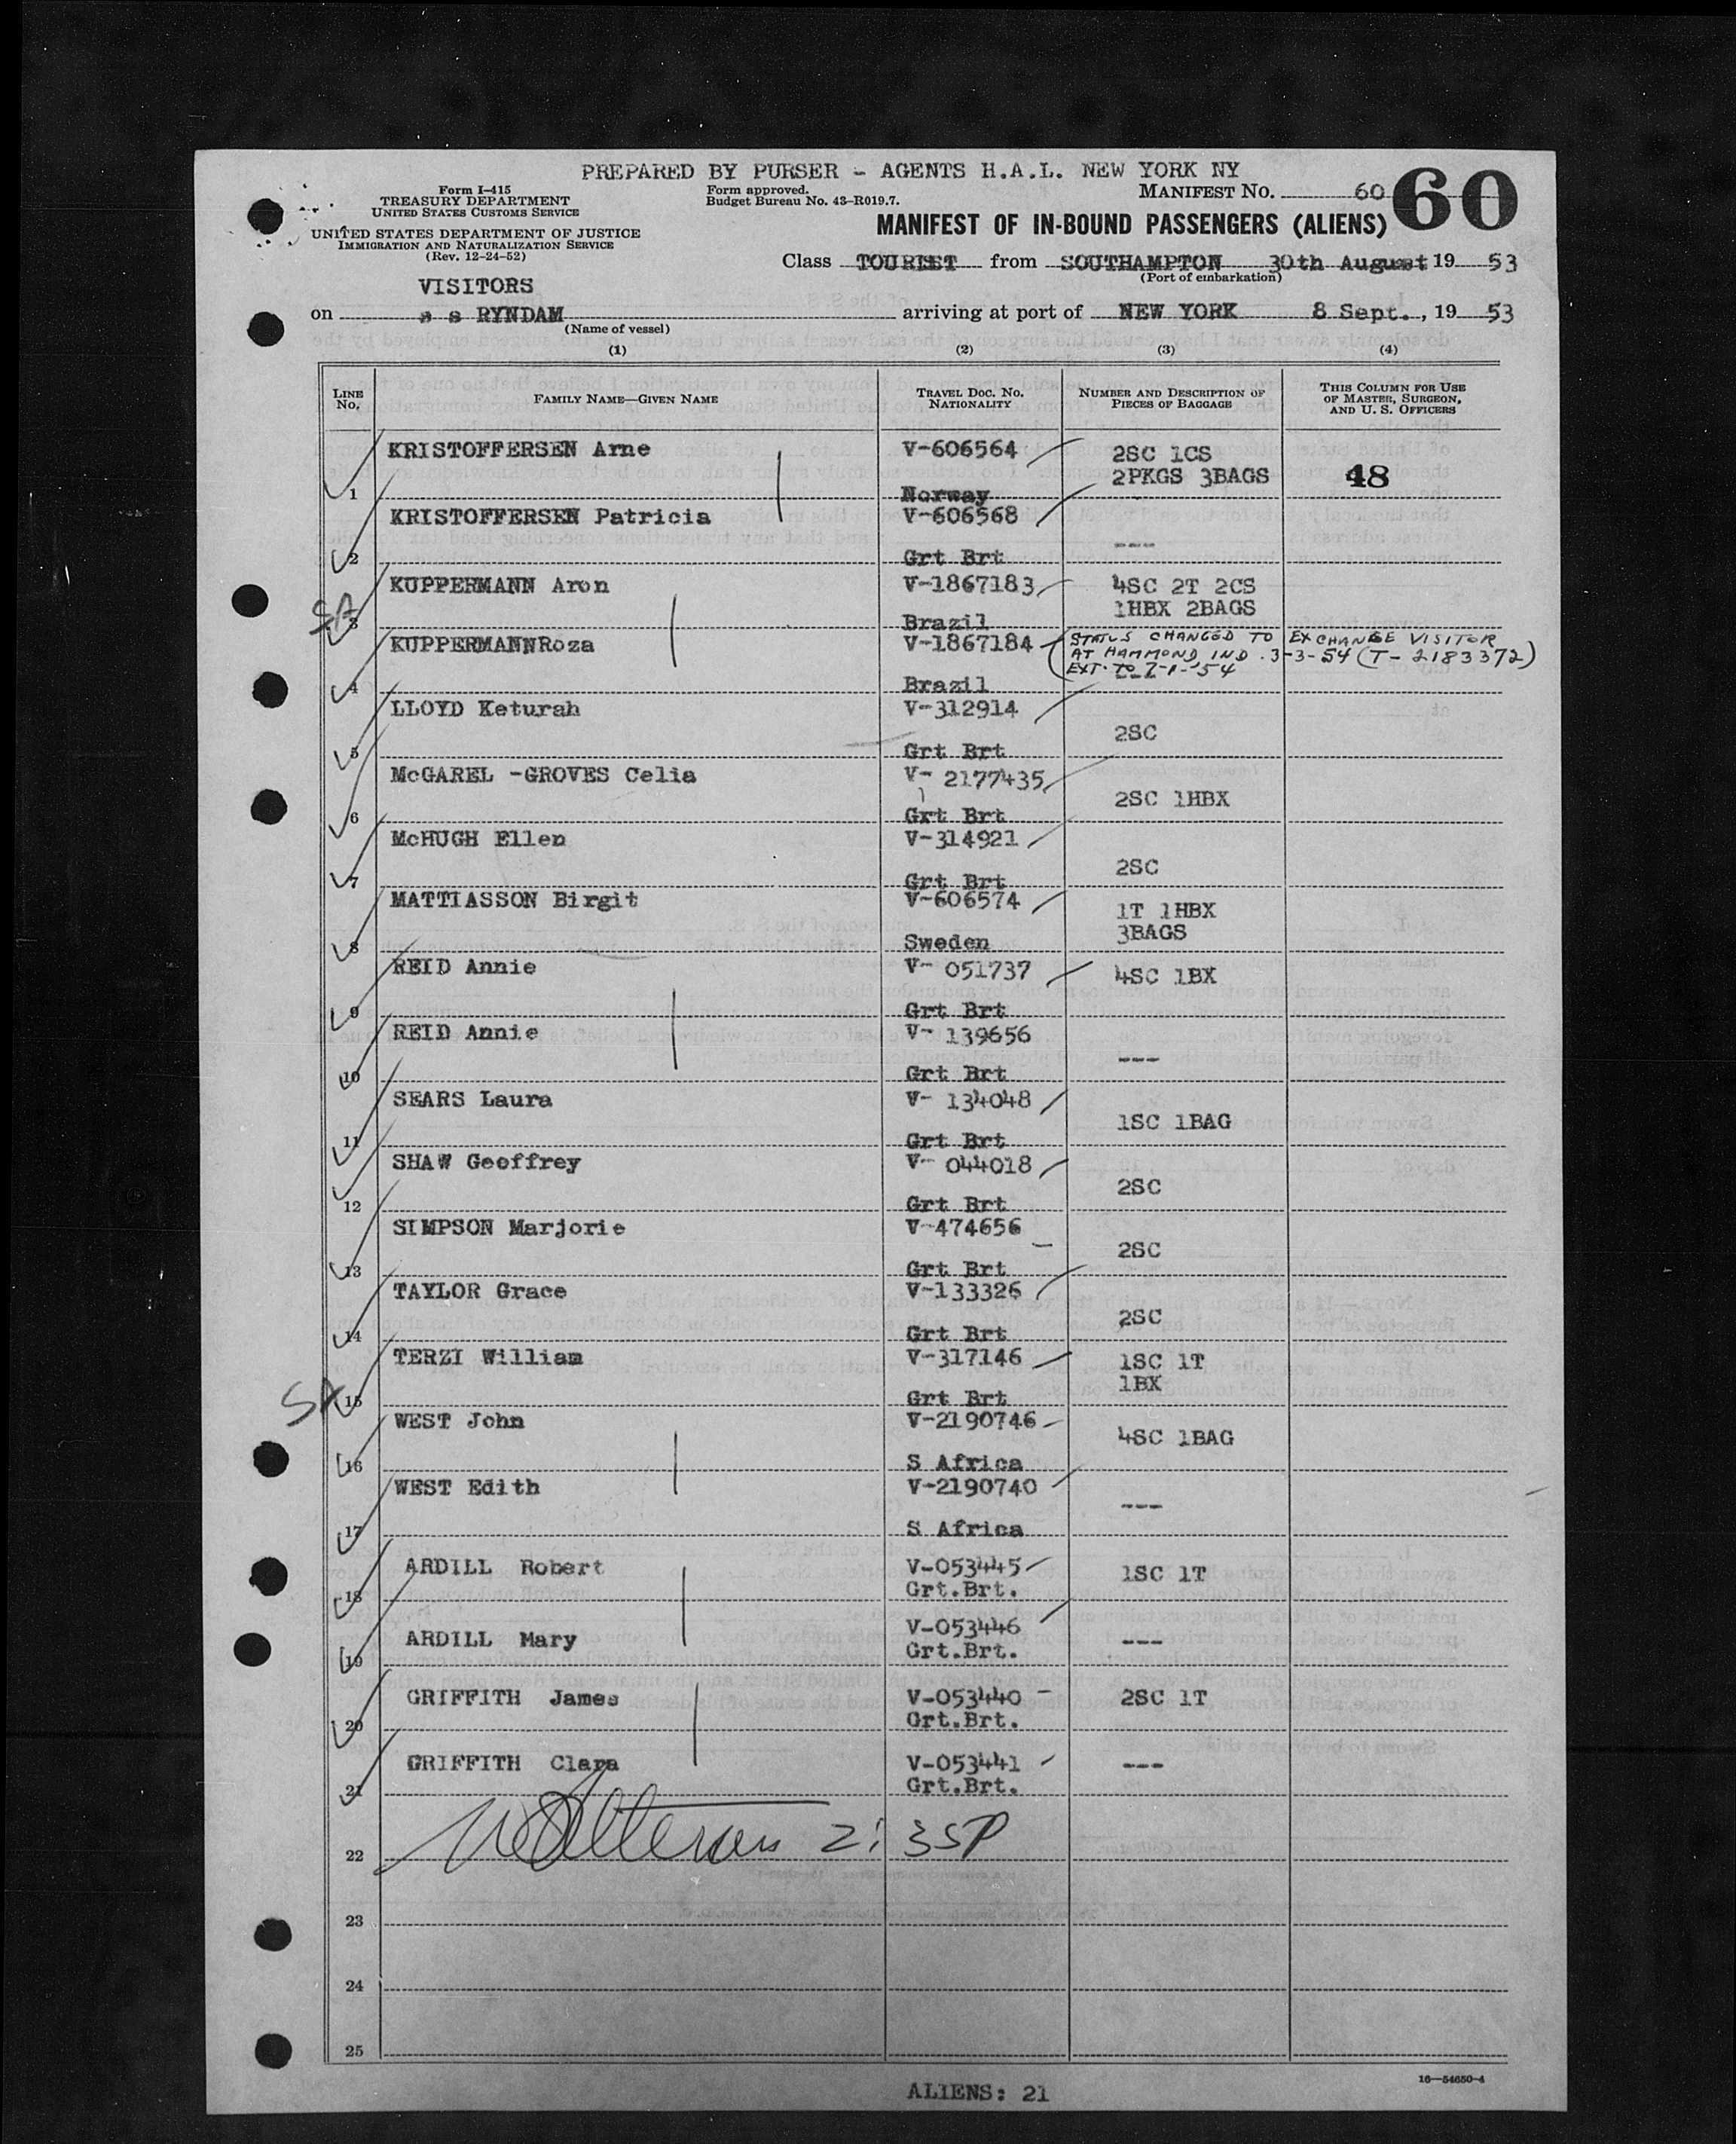 PREPARED BY PURSER - AGENTS H.A.L. NEW YORK NY
Form I-415
TREASURY DEPARTMENT
UNITED STATES CUSTOMS SERVICE
UNITED STATES DEPARTMENT OF JUSTICE
IMMIGRATION AND NATURALIZATION SERVICE
(Rev. 12-24-52)
Form approved.
Budget Bureau No. 43-R019.7.
MANIFEST NO. 60
60
MANIFEST OF IN-BOUND PASSENGERS (ALIENS)
Class TOURIST from SOUTHAMPTON 30th August 19 53
(Port of embarkation)
VISITORS
on s s RYNDAM arriving at port of NEW YORK 8 Sept., 19 53
(Name of vessel)
(1) (2) (3) (4)
LINE NO. FAMILY NAME—GIVEN NAME TRAVEL DOC. NO. NATIONALITY NUMBER AND DESCRIPTION OF PIECES OF BAGGAGE THIS COLUMN FOR USE OF MASTER, SURGEON, AND U. S. OFFICERS
KRISTOFFERSEN Arne V-606564 2SC 1CS
2PKGS 3BAGS 48
1 Norway
KRISTOFFERSEN Patricia V-606568
---
2 Grt Brt
KUPPERMANN Aron V-1867183 4SC 2T 2CS
SA 1HBX 2BAGS
3 Brazil
KUPPERMANNRoza V-1867184 (STATUS CHANGED TO EXCHANGE VISITOR
AT HAMMOND IND. 3-3-54 (T-2183372)
EXT. TO 7-1-'54
4 Brazil
LLOYD Keturah V-312914
2SC
5 Grt Brt
McGAREL -GROVES Celia V- 2177435
2SC 1HBX
6 Grt Brt
McHUGH Ellen V-314921
2SC
7 Grt Brt
MATTIASSON Birgit V-606574 1T 1HBX
3BAGS
8 Sweden
REID Annie V- 051737 4SC 1BX
9 Grt Brt
REID Annie V- 139656
---
10 Grt Brt
SEARS Laura V- 134048
1SC 1BAG
11 Grt Brt
SHAW Geoffrey V- 044018
2SC
12 Grt Brt
SIMPSON Marjorie V-474656
2SC
13 Grt Brt
TAYLOR Grace V-133326
2SC
14 Grt Brt
TERZI William V-317146 1SC 1T
1BX
SA 15 Grt Brt
WEST John V-2190746
4SC 1BAG
16 S Africa
WEST Edith V-2190740
---
17 S Africa
ARDILL Robert V-053445 1SC 1T
18 Grt.Brt.
ARDILL Mary V-053446 ---
19 Grt.Brt.
GRIFFITH James V-053440 2SC 1T
20 Grt.Brt.
GRIFFITH Clara V-053441 ---
21 Grt.Brt.
2: 35P
22
23
24
25
16—54650-4
ALIENS: 21